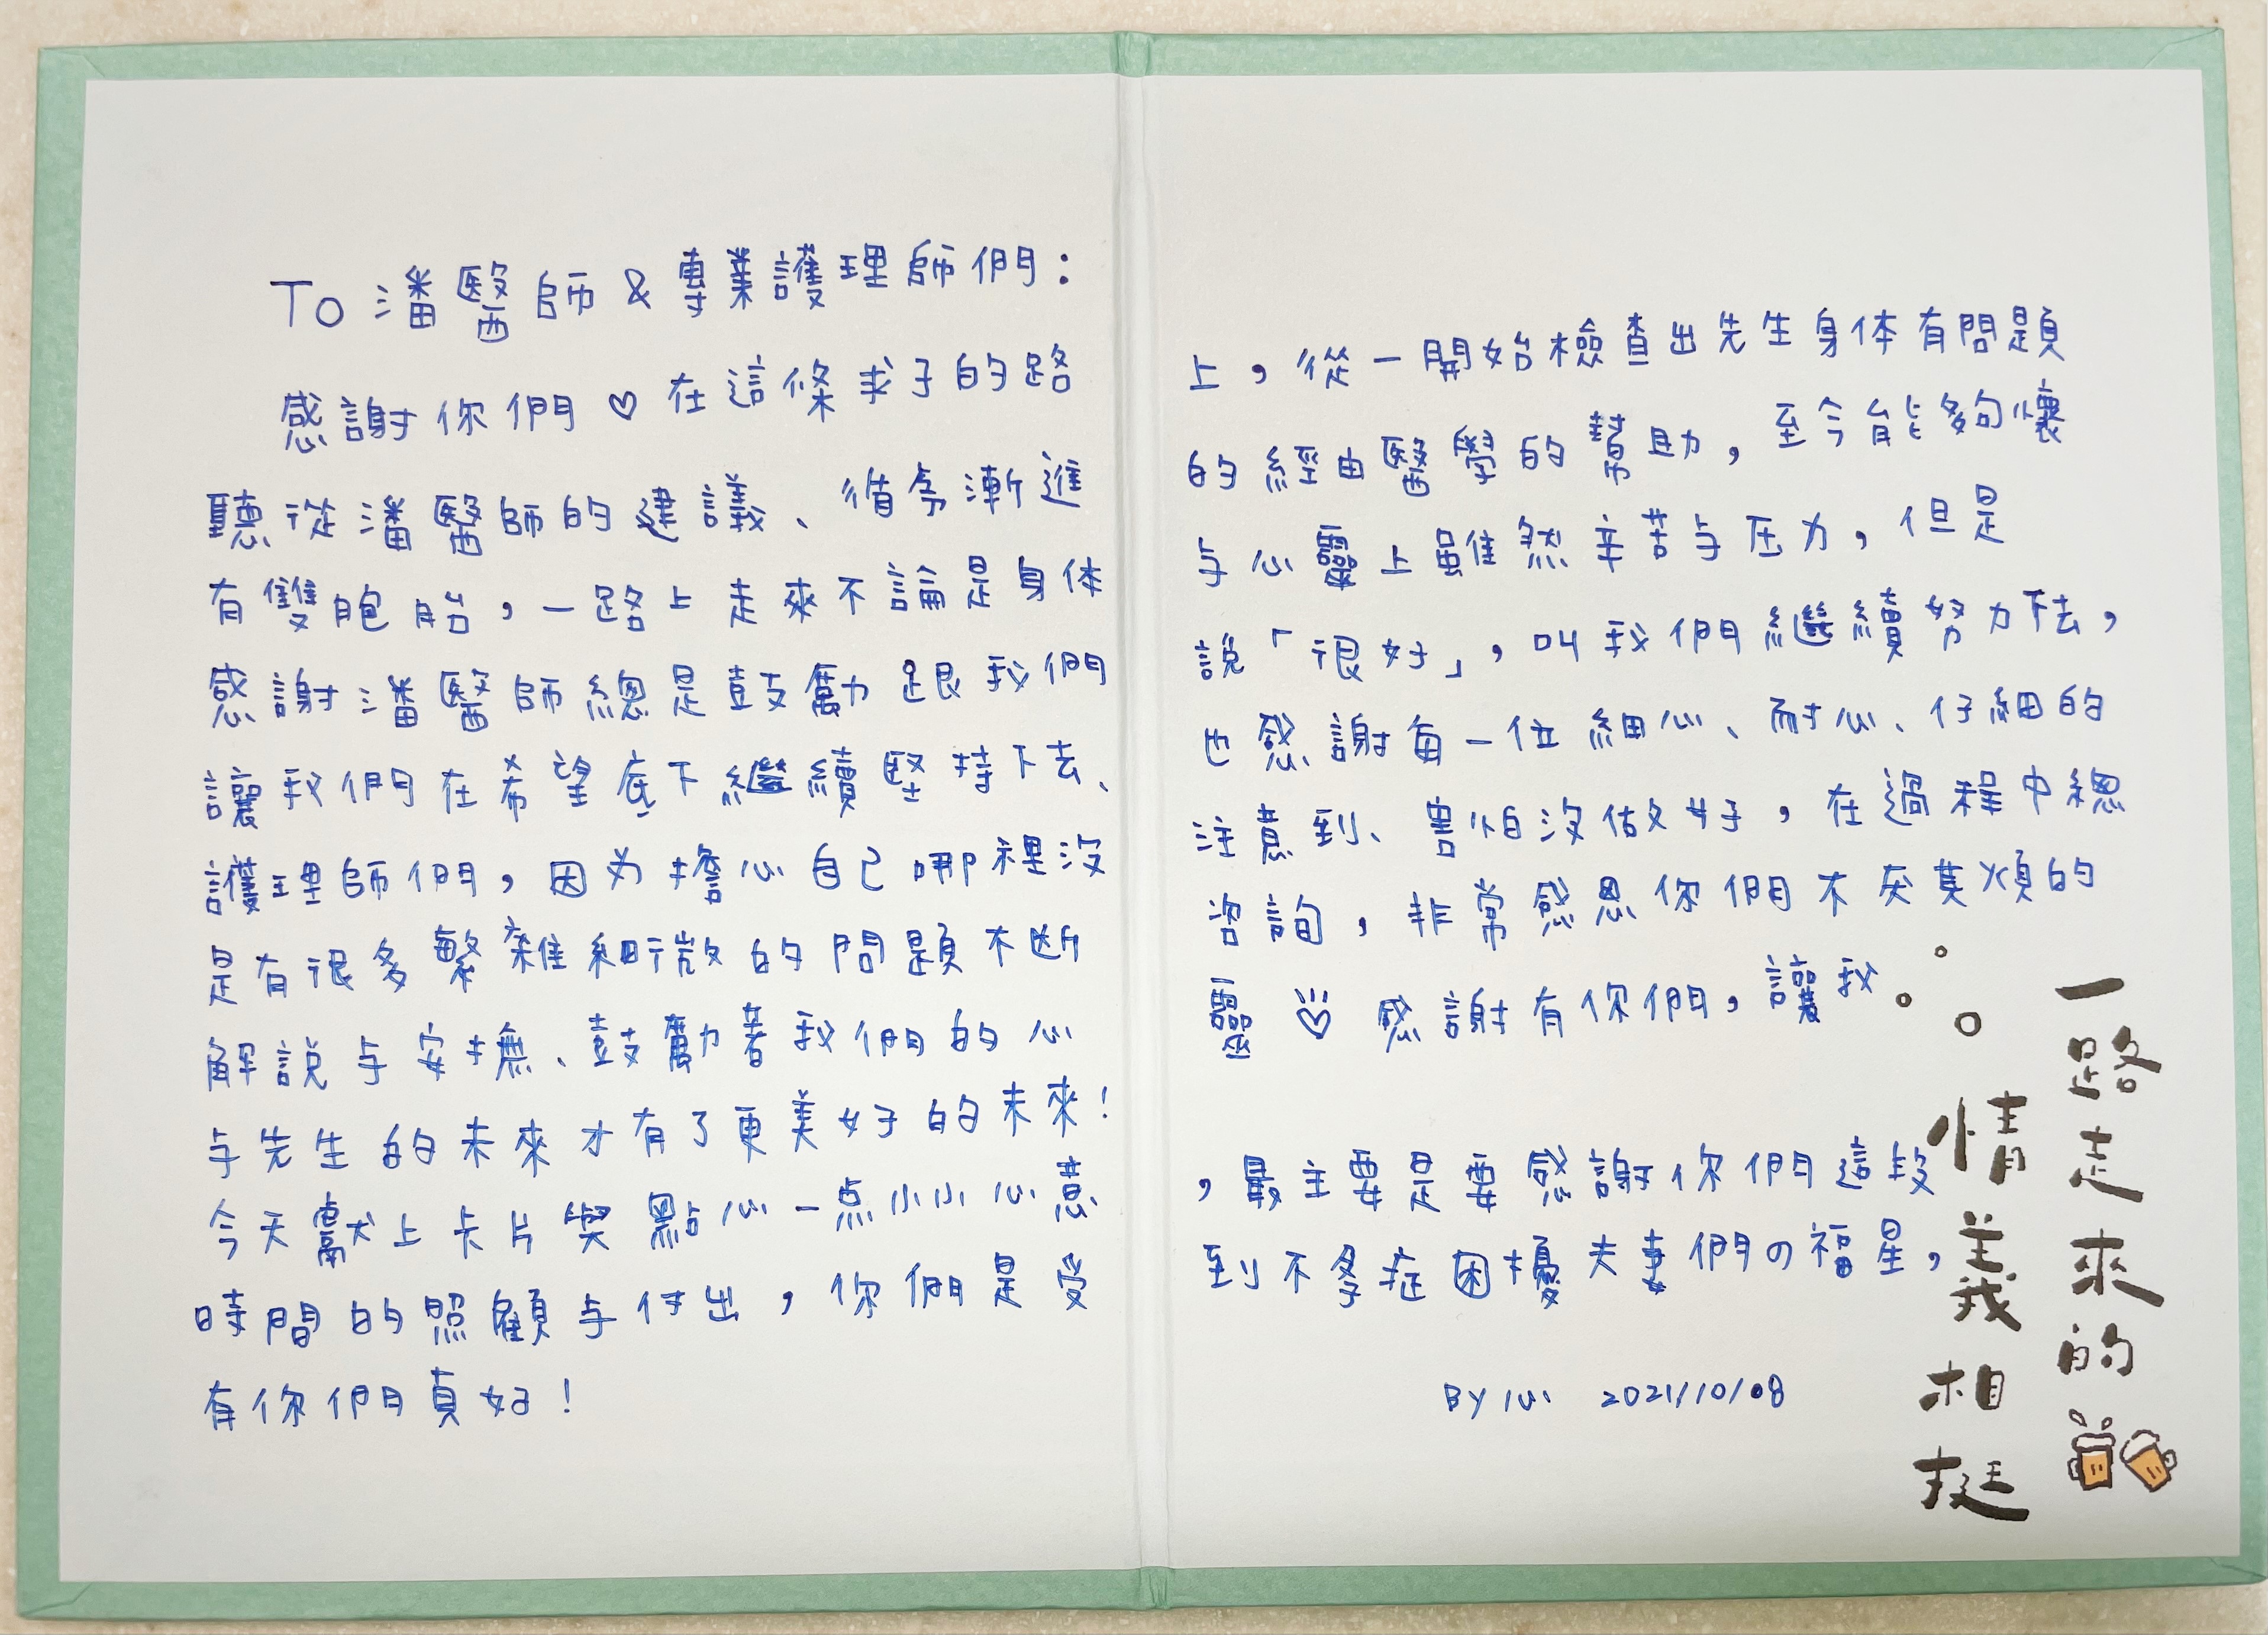 To 潘醫師 & 專業護理師們：
感謝你們♡在這條求子的路上，從一開始檢查出先生身体有問題
聽從潘醫師的建議、循序漸進的經由醫學的幫助，至今能夠懷
有雙胞胎，一路上走來不論是身体与心靈上雖然辛苦与压力，但是
感謝潘醫師總是鼓勵跟我們說「很好」，叫我們繼續努力下去，
讓我們在希望底下繼續堅持下去、也感謝每一位細心、耐心、仔細的
護理師們，因为擔心自己哪裡沒注意到、害怕沒做好，在過程中總
是有很多繁雜細微的問題不断咨詢，非常感恩你們不厌其煩的
解說与安撫、鼓勵著我們的心靈♡感謝有你們，讓我
与先生的未來才有了更美好的未來！
今天獻上卡片與點心一点小小心意，最主要是要感謝你們這段
時間的照顧与付出，你們是受到不孕症困擾夫妻們の福星，
有你們真好！
BY 心 2021/10/08
一路走來的
情義相挺